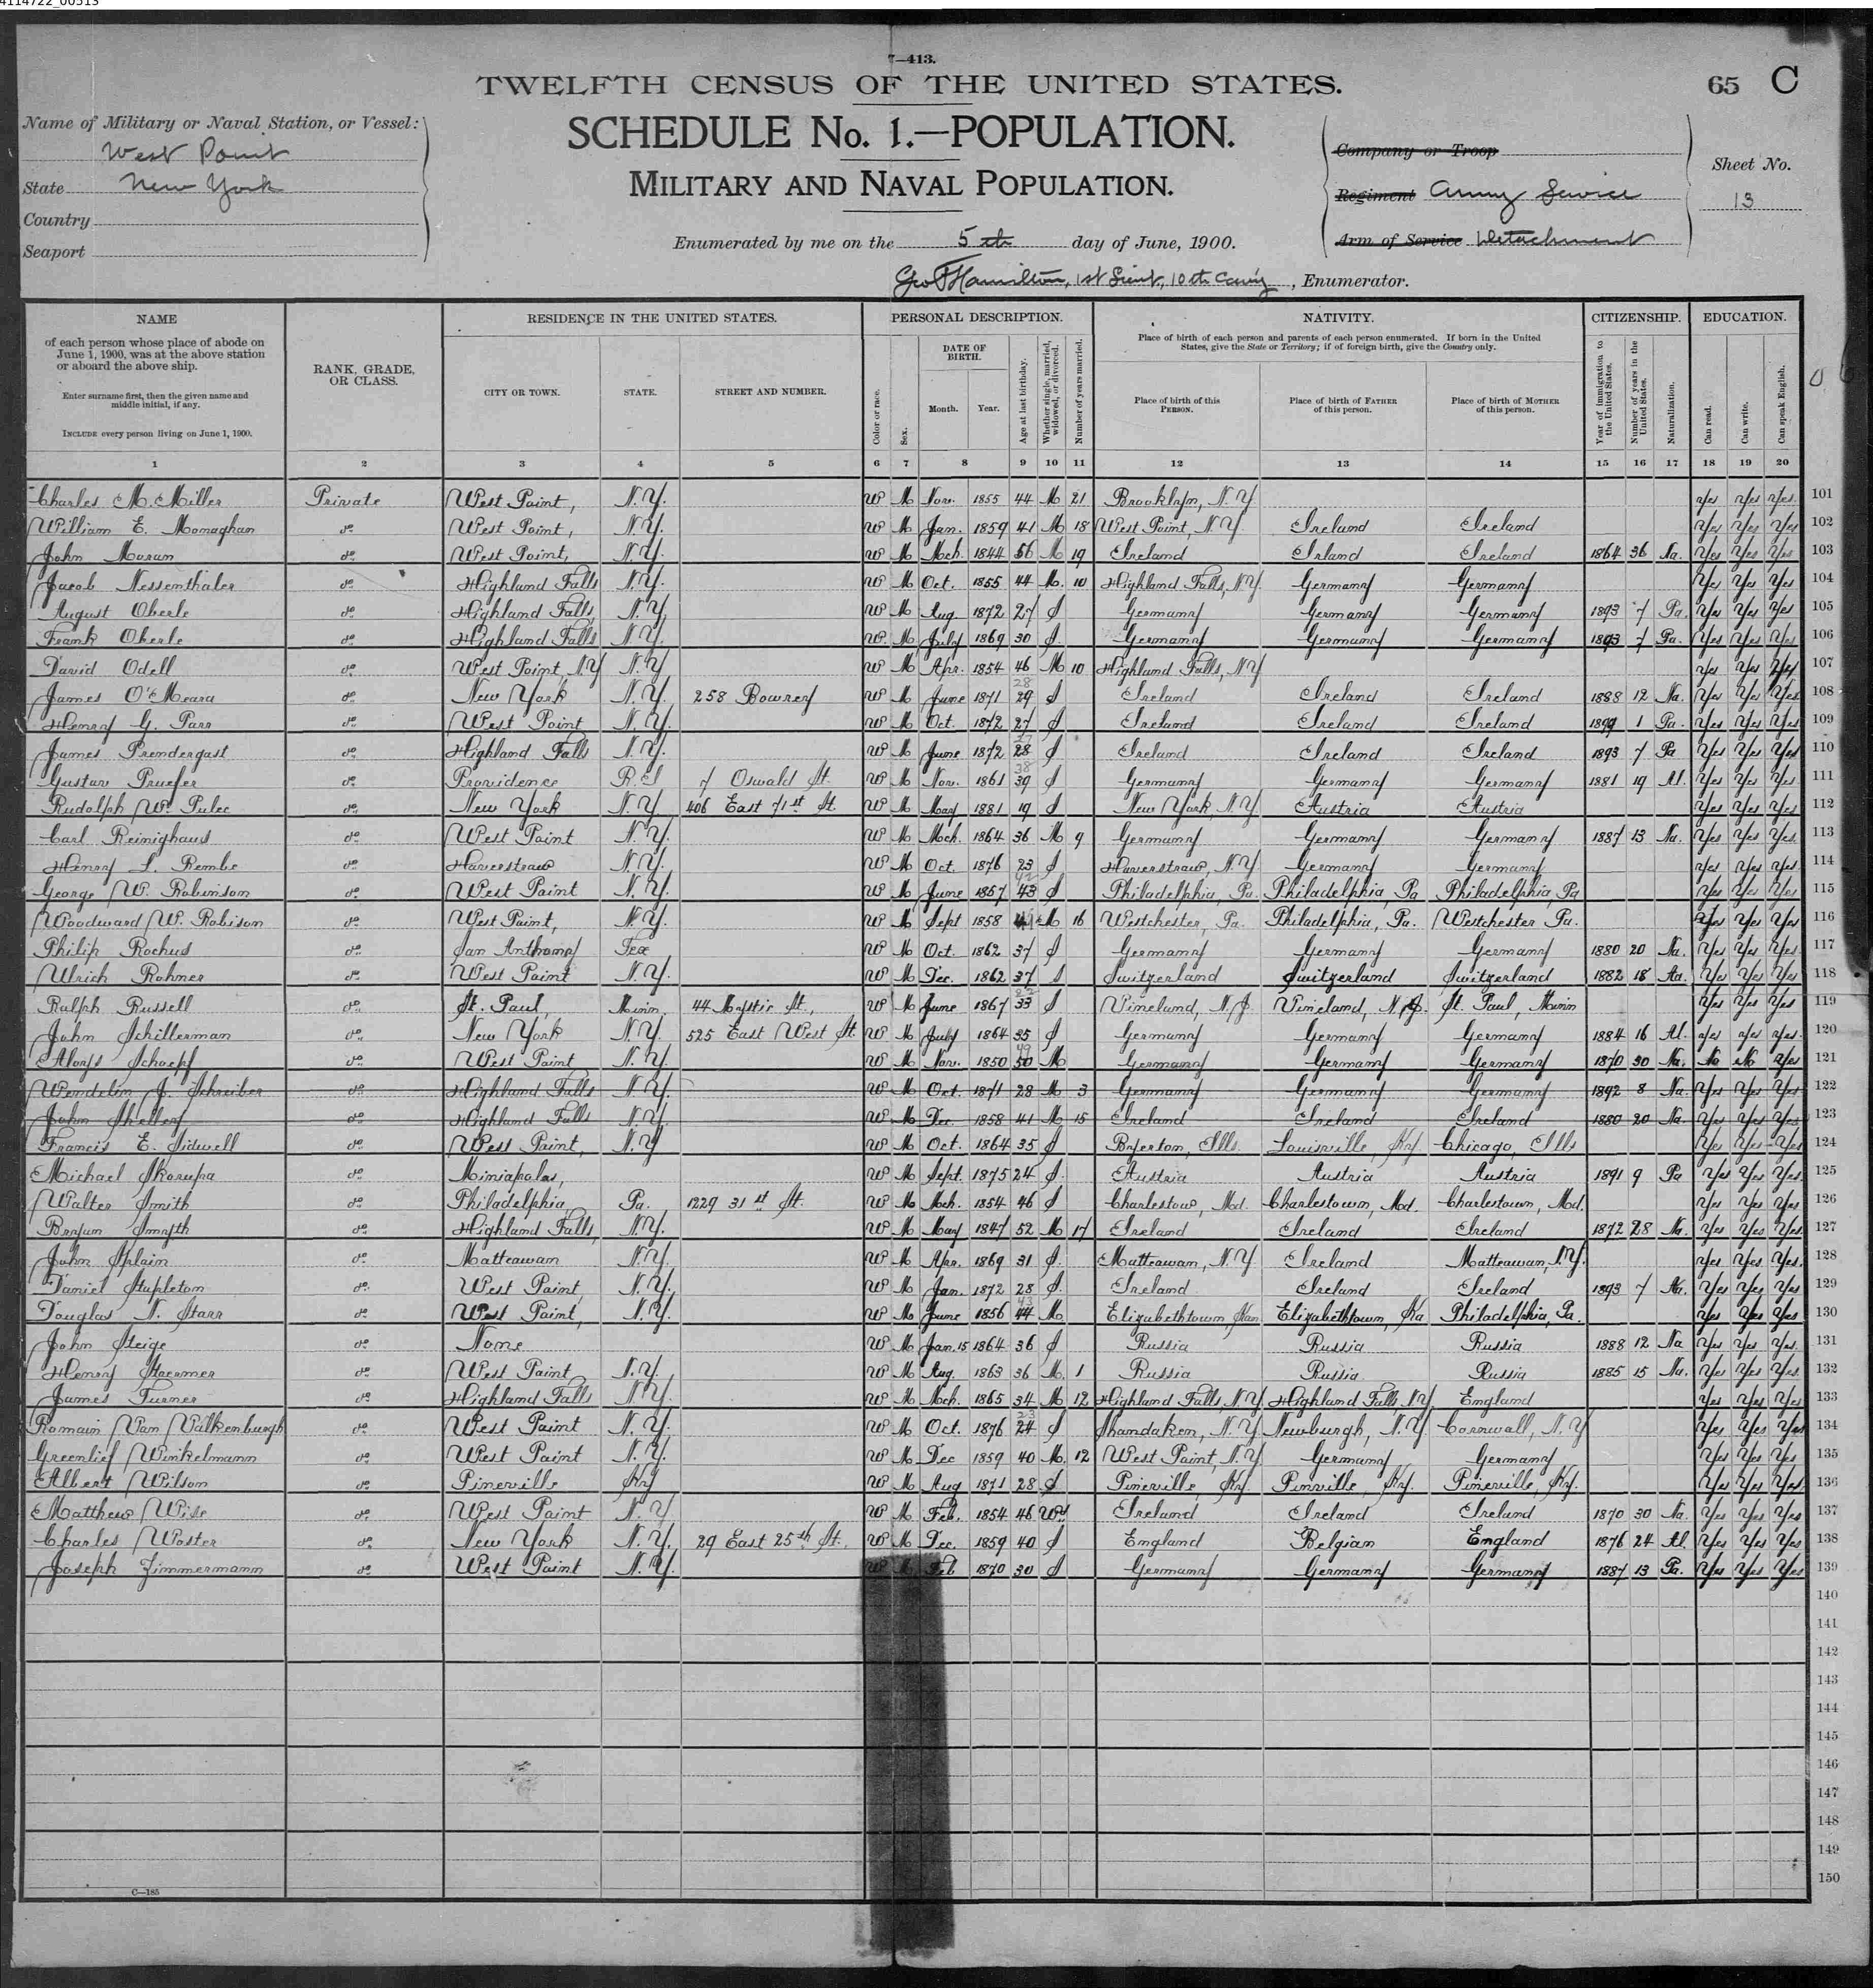 4114722_00513
7—413.
TWELFTH CENSUS OF THE UNITED STATES.
65 C
Name of Military or Naval Station, or Vessel:
West Point
State New York
Country
Seaport
SCHEDULE No. 1.—POPULATION.
MILITARY AND NAVAL POPULATION.
Enumerated by me on the 5th day of June, 1900.
Geo F Hamilton, 1st Lieut., 10th Cav'y, Enumerator.
Company or Troop
Regiment Army Service
Arm of Service Detachment
Sheet No.
13
NAME
of each person whose place of abode on June 1, 1900, was at the above station or aboard the above ship.
Enter surname first, then the given name and middle initial, if any.
INCLUDE every person living on June 1, 1900.
RANK, GRADE, OR CLASS.
RESIDENCE IN THE UNITED STATES.
CITY OR TOWN. STATE. STREET AND NUMBER.
PERSONAL DESCRIPTION.
Color or race. Sex. DATE OF BIRTH. Month. Year. Age at last birthday. Whether single, married, widowed, or divorced. Number of years married.
NATIVITY.
Place of birth of each person and parents of each person enumerated. If born in the United States, give the State or Territory; if of foreign birth, give the Country only.
Place of birth of this PERSON. Place of birth of FATHER of this person. Place of birth of MOTHER of this person.
CITIZENSHIP.
Year of immigration to the United States. Number of years in the United States. Naturalization.
EDUCATION.
Can read. Can write. Can speak English.
1 2 3 4 5 6 7 8 9 10 11 12 13 14 15 16 17 18 19 20
Charles M. Miller Private West Point, N.Y. W M Nov. 1855 44 M 21 Brooklyn, N.Y. Yes Yes Yes 101
William E. Monaghan do West Point, N.Y. W M Jan. 1859 41 M 18 West Point, N.Y. Ireland Ireland Yes Yes Yes 102
John Moran do West Point, N.Y. W M Mch. 1844 56 M 19 Ireland Irland Ireland 1864 36 Na. Yes Yes Yes 103
Jacob Nessenthaler do Highland Falls N.Y. W M Oct. 1855 44 M. 10 Highland Falls, N.Y. Germany Germany Yes Yes Yes 104
August Oberle do Highland Falls, N.Y. W M Aug. 1872 27 S Germany Germany Germany 1893 7 Pa. Yes Yes Yes 105
Frank Oberle do Highland Falls N.Y. W M July 1869 30 S. Germany Germany Germany 1893 7 Pa. Yes Yes Yes 106
David Odell do West Point, N.Y. N.Y. W M Apr. 1854 46 M 10 Highland Falls, N.Y. Yes Yes Yes 107
James O'Meara do New York N.Y. 258 Bowery W M June 1871 28 29 S Ireland Ireland Ireland 1888 12 Na. Yes Yes Yes 108
Henry G. Parr do West Point N.Y. W M Oct. 1872 27 S Ireland Ireland Ireland 1899 1 Pa. Yes Yes Yes 109
James Prendergast do Highland Falls N.Y. W M June 1872 27 28 S Ireland Ireland Ireland 1893 7 Pa Yes Yes Yes 110
Gustav Pruefer do Providence R.I 7 Oswald St. W M Nov. 1861 38 39 S Germany Germany Germany 1881 19 Al. Yes Yes Yes 111
Rudolph W. Pulec do New York N.Y. 406 East 71st St. W M May 1881 19 S New York, N.Y. Austria Austria Yes Yes Yes 112
Carl Reinighaus do West Point N.Y. W M Mch. 1864 36 M 9 Germany Germany Germany 1887 13 Na. Yes Yes Yes 113
Henry L. Rembe do Haverstraw N.Y. W M Oct. 1876 23 S Haverstraw, N.Y. Germany Germany Yes Yes Yes 114
George W. Robinson do. West Point N.Y. W M June 1857 42 43 S Philadelphia, Pa. Philadelphia, Pa Philadelphia, Pa Yes Yes Yes 115
Woodward W. Robison do West Point, N.Y. W M Sept 1858 41 M 16 Westchester, Pa. Philadelphia, Pa. Westchester Pa. Yes Yes Yes 116
Philip Rochus do San Anthony Tex W M Oct. 1862 37 S Germany Germany Germany 1880 20 Na. Yes Yes Yes 117
Ulrich Rohmer do West Point N.Y. W M Dec. 1862 37 S Switzerland Switzerland Switzerland 1882 18 Na. Yes Yes Yes 118
Ralph Russell do St. Paul, Minn. 44 St., W M June 1867 32 33 S Vineland, N.J. Vineland, N.J. St. Paul, Minn Yes Yes Yes 119
John Schillerman do New York N.Y. 525 East West St. W M July 1864 35 S Germany Germany Germany 1884 16 Al. Yes Yes Yes 120
Aloys Schoepf do West Point N.Y. W M Nov. 1850 49 50 M Germany Germany Germany 1870 30 Na. No No Yes 121
Wendelin J. Schreiber do Highland Falls N.Y. W M Oct. 1871 28 M 3 Germany Germany Germany 1892 8 Na. Yes Yes Yes 122
John Shelley do Highland Falls N.Y. W M Dec. 1858 41 M 15 Ireland Ireland Ireland 1880 20 Na. Yes Yes Yes 123
Francis E. Sidwell do West Point, N.Y W M Oct. 1864 35 S Byerton, Ills. Louisville, Ky. Chicago, Ills Yes Yes Yes 124
Michael Skorupa do Miniapolas, W M Sept. 1875 24 S. Austria Austria Austria 1891 9 Pa Yes Yes Yes 125
Walter Smith do Philadelphia, Pa. 1229 31st St. W M Mch. 1854 46 S Charlestow, Md. Charlestown, Md. Charlestown, Md. Yes Yes Yes 126
Smyth do Highland Falls, N.Y. W M May 1847 52 M 17 Ireland Ireland Ireland 1872 28 Na. Yes Yes Yes 127
John Splain do Matteawan N.Y. W M Apr. 1869 31 S. Matteawan, N.Y. Ireland Matteawan, N.Y. Yes Yes Yes. 128
Daniel Stapleton do West Point, N.Y. W M Jan. 1872 28 S. Ireland Ireland Ireland 1893 7 Na. Yes Yes Yes 129
Douglas N. Starr do West Point, N.Y. W M June 1856 43 44 M. Elizabethtown, Kan Elizabethtown, Ka Philadelphia, Pa. Yes Yes Yes 130
John Steige do None W M Jan. 15 1864 36 S Russia Russia Russia 1888 12 Na Yes Yes Yes. 131
Henry Stoermer do West Point N.Y. W M Aug. 1863 36 M. 1 Russia Russia Russia 1885 15 Na. Yes Yes Yes 132
James Turner do Highland Falls N.Y. W M Mch. 1865 34 M 12 Highland Falls, N.Y. Highland Falls, N.Y. England Yes Yes Yes 133
Romain Van Valkenburgh do West Point N.Y. W M Oct. 1876 23 24 S Shandaken, N.Y. Newburgh, N.Y. Cornwall, N.Y Yes Yes Yes 134
Greenlief Winkelmann do West Point N.Y. W M Dec 1859 40 M. 12 West Point, N.Y. Germany Germany Yes Yes Yes 135
Albert Wilson do Pineville Ky W M Aug 1871 28 S Pineville, Ky. Pinville, Ky. Pineville, Ky. Yes Yes Yes 136
Matthew Wise do West Point N.Y W M Feb. 1854 46 Wd Ireland Ireland Ireland 1870 30 Na. Yes Yes Yes 137
Charles Woster do New York N.Y. 29 East 25th St. W M Dec. 1859 40 S England Belgian England 1876 24 Al. Yes Yes Yes 138
Joseph Zimmermann do West Point N.Y. W M Feb 1870 30 S Germany Germany Germany 1887 13 Pa. Yes Yes Yes 139
140
141
142
143
144
145
146
147
148
149
150
C—185